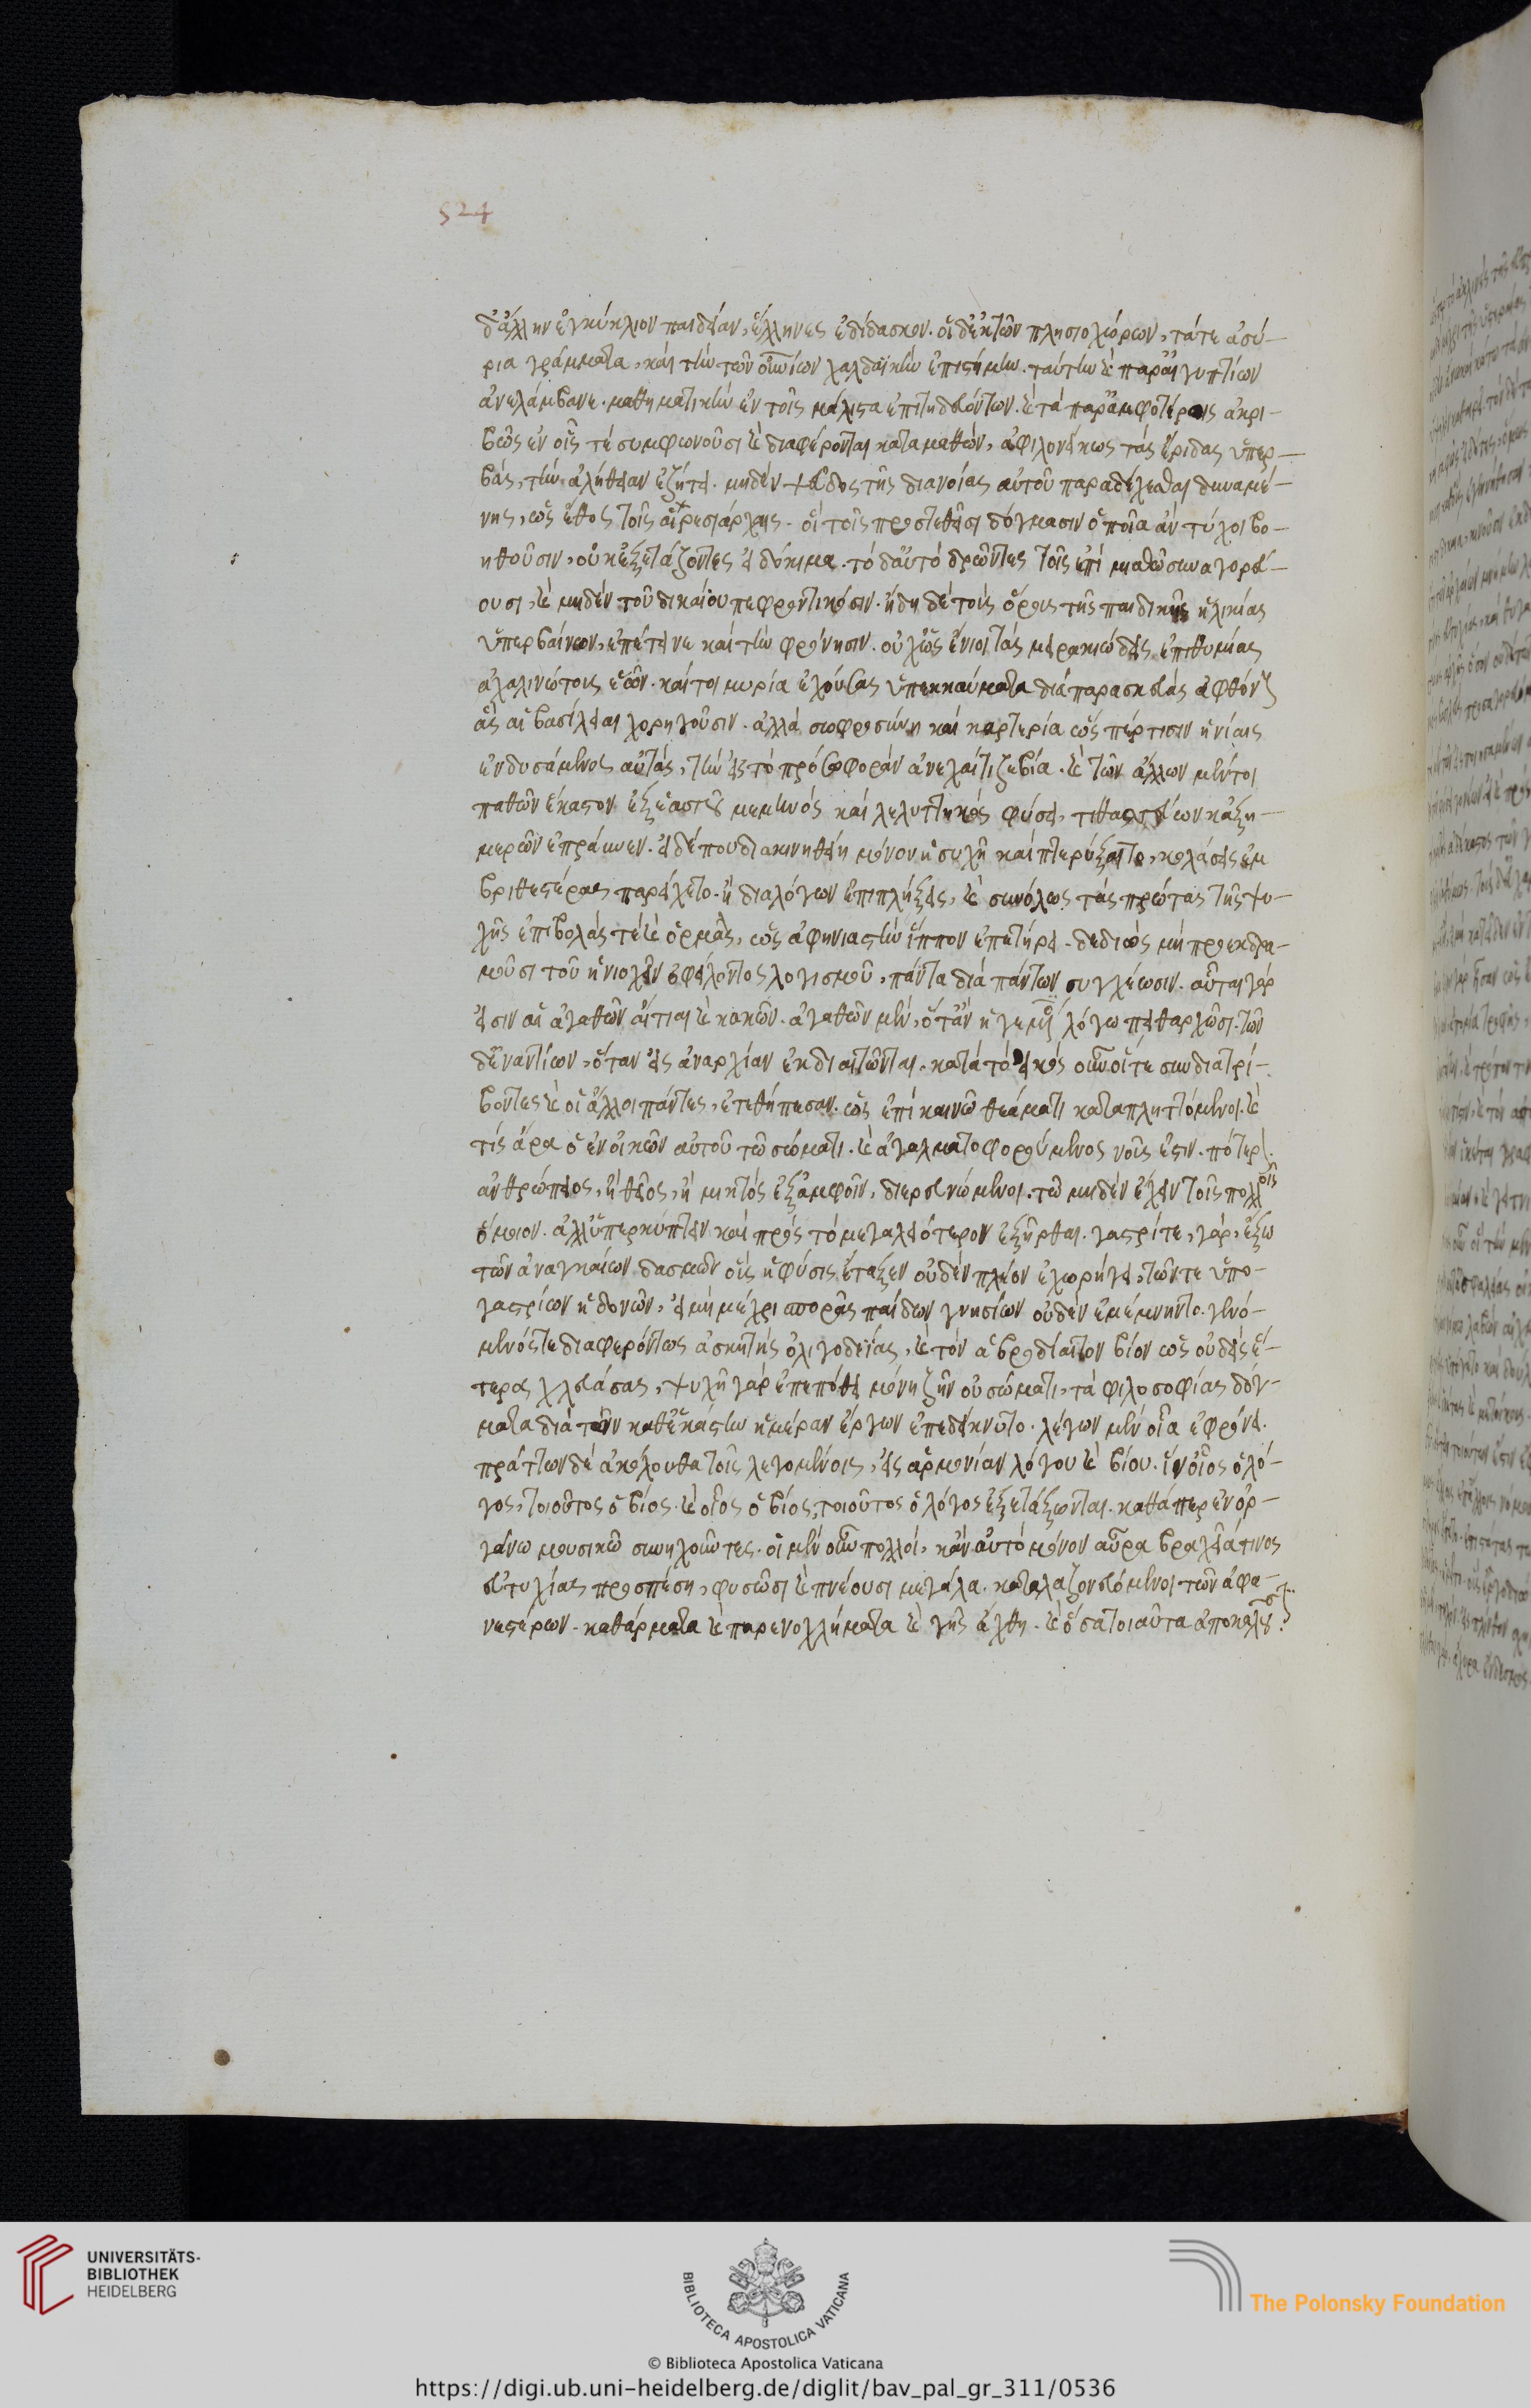 524
δ' ἄλλην ἐγκύκλιον παιδείαν, ἕλληνες ἐδίδασκον. οἱ δ' ἐκ τῶν πλησιοχώρων, τά τε ἀσύ-
ρια γράμματα, καὶ τὴν τῶν οὐρανίων χαλδαϊκὴν ἐπιστήμην. ταύτην καὶ παρ' αἰγυπτίων
ἀνελάμβανε. μαθηματικὴν ἐν τοῖς μάλιστα ἐπιτηδευόντων. καὶ τὰ παρ' ἀμφοτέροις ἀκρι-
βῶς ἐν οἷς τε συμφωνοῦσι καὶ διαφέρονται καταμαθὼν, ἀφιλονείκως τὰς ἔριδας ὑπερ-
βὰς, τὴν ἀλήθειαν ἐζήτει. μηδὲν ψεῦδος τῆς διανοίας αὐτοῦ παραδέχεσθαι δυναμέ-
νης, ὡς ἔθος τοῖς αἱρεσιάρχαις. οἳ τοῖς προστεθεῖσι δόγμασιν ὁποῖα ἂν τύχοι βο-
ηθοῦσιν, οὐκ ἐξετάζοντες εἰ δόκιμα. τὸ δ' αὐτὸ δρῶντες τοῖς ἐπὶ μισθῷ συναγορεύ-
ουσι, καὶ μηδὲν τοῦ δικαίου πεφροντικόσιν. ἤδη δὲ τοὺς ὅρους τῆς παιδικῆς ἡλικίας
ὑπερβαίνων, ἐπέτεινε καὶ τὴν φρόνησιν. οὐχ ὡς ἔνιοι τὰς μειρακιώδεις ἐπιθυμίας
ἀχαλινώτους ἐῶν. καίτοι μυρία ἐχούσας ὑπεκκαύματα διὰ παρασκευὰς ἀφθόνους
ἃς αἱ βασίλειαι χορηγοῦσιν. ἀλλὰ σωφροσύνη καὶ καρτερία ὥς πέρ τισιν ἡνίαις
ἐνδυσάμενος αὐτὰς, τὴν εἰς τὸ πρόσω φορὰν ἀνεχαίτιζε βίᾳ. καὶ τῶν ἄλλων μέντοι
παθῶν ἕκαστον ἐξ ἑαυτοῦ μεμηνὸς καὶ λελυττηκὸς φύσει, τιθασεύων κἀξη-
μερῶν ἐπράυνεν. εἰ δέ που διακινηθείη μόνον ἡσυχῆ καὶ πτερύξαιτο, κολάσεις ἐμ
βριθεστέρας παρείχετο. ἢ διὰ λόγων ἐπιπλήξεις, καὶ συνόλως τὰς πρώτας τῆς ψυ-
χῆς ἐπιβολάς τε καὶ ὁρμὰς, ὡς ἀφηνιαστὴν ἵππον ἐπετήρει. δεδιὼς μὴ προεκδρα-
μοῦσαι τοῦ ἡνιοχεῖν ὀφείλοντος λογισμοῦ, πάντα διὰ πάντων συγχέωσιν. αὗται γάρ
εἰσιν αἱ ἀγαθῶν αἴτιαι καὶ κακῶν. ἀγαθῶν μὲν, ὅταν ἡγεμόνι λόγῳ πειθαρχῶσι. τῶν
δ' ἐναντίων, ὅταν εἰς ἀναρχίαν ἐκδιαιτῶνται. κατὰ τὸ εἰκὸς οὖν οἵ τε συνδιατρί-
βοντες καὶ οἱ ἄλλοι πάντες, ἐτεθήπεσαν. ὡς ἐπὶ καινῷ θεάματι καταπληττόμενοι. καὶ
τίς ἄρα ὁ ἐνοικῶν αὐτοῦ τῷ σώματι. καὶ ἀγαλματοφορούμενος νοῦς ἐστιν. πότερον
ἀνθρώπειος, ἢ θεῖος, ἢ μικτὸς ἐξ ἀμφοῖν, διερευνώμενοι. τῷ μηδὲν ἔχειν τοῖς πολλοῖς
ὅμοιον. ἀλλ' ὑπερκύπτειν καὶ πρὸς τὸ μεγαλειότερον ἐξῆρθαι. γαστρί τε, γὰρ, ἔξω
τῶν ἀναγκαίων δασμῶν οὓς ἡ φύσις ἔταξεν οὐδὲν πλέον ἐχορήγει, τῶν τε ὑπο-
γαστρίων ἡδονῶν, εἰ μὴ μέχρι σπορᾶς παίδων γνησίων οὐδὲν ἐμέμνητο. γενό-
μενός τε διαφερόντως ἀσκητὴς ὀλιγοδεΐας, καὶ τὸν ἁβροδίαιτον βίον ὡς οὐδεὶς ἕ-
τερος χλευάσας, ψυχῇ γὰρ ἐπεπόθει μόνῃ ζῆν οὐ σώματι, τὰ φιλοσοφίας δόγ-
ματα διὰ τῶν καθ' ἑκάστην ἡμέραν ἔργων ἐπεδείκνυτο. λέγων μὲν οἷα ἐφρόνει.
πράττων δὲ ἀκόλουθα τοῖς λεγομένοις, εἰς ἁρμονίαν λόγου καὶ βίου. ἵν' οἷος ὁ λό-
γος, τοιοῦτος ὁ βίος. καὶ οἷος ὁ βίος, τοιοῦτος ὁ λόγος ἐξετάζωνται. καθάπερ ἐν ὀρ-
γάνῳ μουσικῷ συνηχοῦντες. οἱ μὲν οὖν πολλοί, κἂν αὐτὸ μόνον αὔρα βραχεῖά τινος
εὐτυχίας προσπέσῃ, φυσῶσι καὶ πνέουσι μεγάλα. καταλαζονευόμενοι τῶν ἀφα-
νεστέρων. καθάρματα καὶ παρενοχλήματα καὶ γῆς ἄχθη. καὶ ὅσα τοιαῦτα ἀποκαλοῦσι.
UNIVERSITÄTS-
BIBLIOTHEK
HEIDELBERG
BIBLIOTECA APOSTOLICA VATICANA
The Polonsky Foundation
© Biblioteca Apostolica Vaticana
https://digi.ub.uni-heidelberg.de/diglit/bav_pal_gr_311/0536